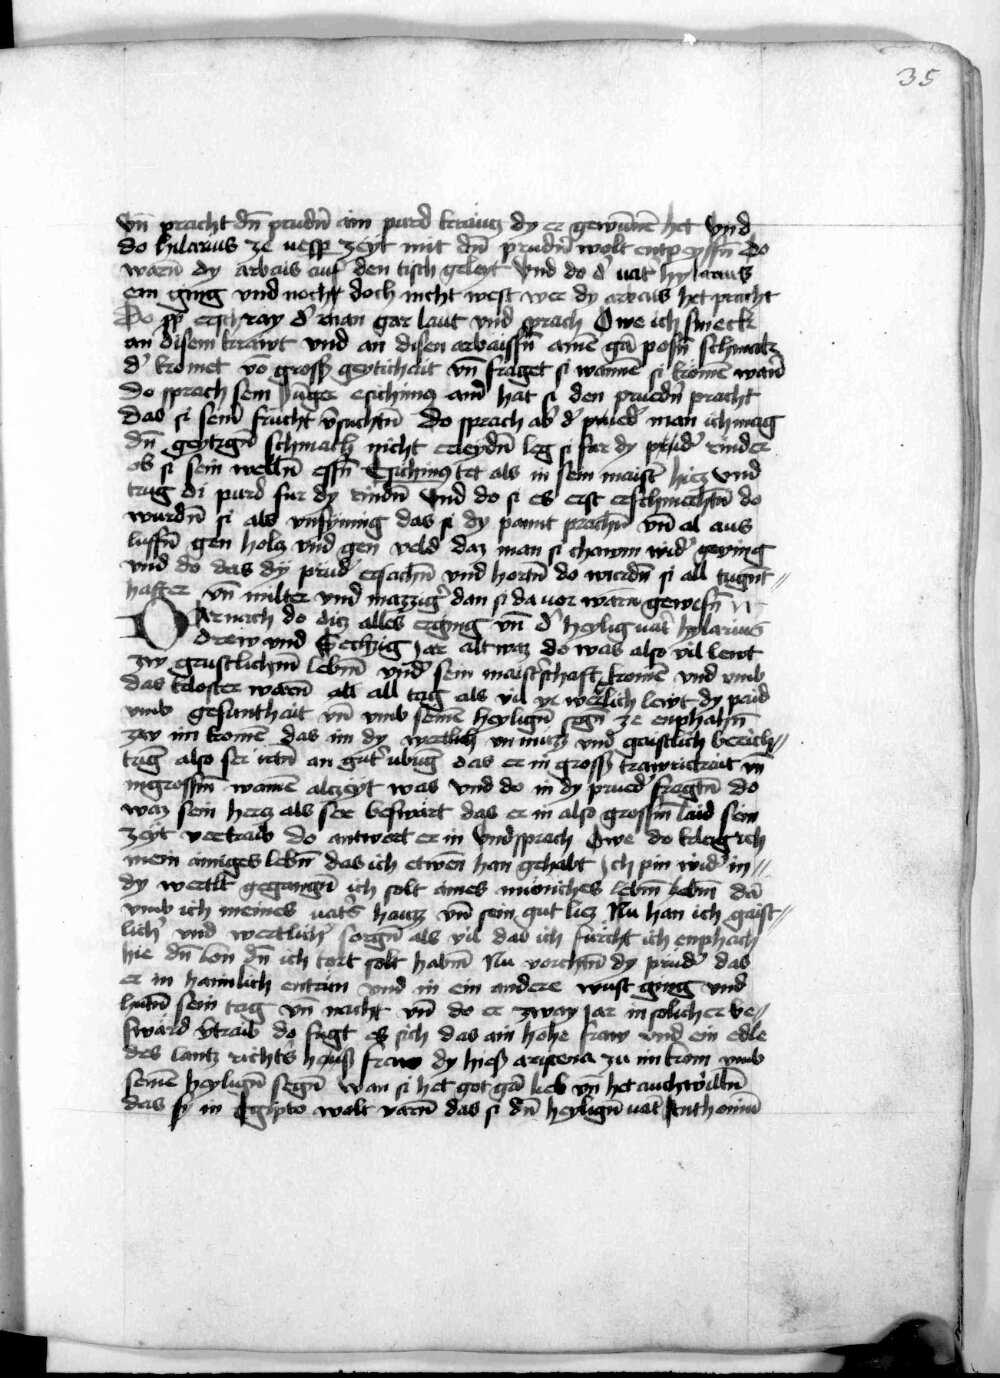 35
vn̄ pracht dn̄ prudn̄ ain purd krautz dy er gewunnē het Vnd
do hilarius ze uesp zeyt mit dn̄ prudn̄ wolt entpeyssn̄ Do
warn̄ dy arbais auf den tisch geleyt Vnd do d' uat hylarius
ein ging vnd nocht doch nicht west wer dy arbais het pracht
Do erschray d' man gar laut vnd sprach Owe ich smeck
an disem krawt vnd an disen arbaissn̄ ainē gar posn̄ schmack
d' kromet vō gross geytichait vn̄ fraget si wannē si kromē warn̄
do sprach sein Junger esichius ainr hat si den pruedn̄ pracht
das si sein frucht v'suchtn̄ Do sprach ab' d' prued' man ich mag
dn̄ geytzign̄ schmackh nicht erleydn̄ leg si fur dy prud' rinder
ob si sein welln̄ essn̄ Esichius tet als in sein maist' hiez vnd
trug di purd fur dy rindn̄ Vnd do si es erst erschmecktn̄ do
wurdn̄ si als vnsynnig das si dy pannt prachn̄ vn̄ al aus
luffn̄ gen holtz vnd gen veld daz man si chawm wid' geving
vnd do das dy prud' ersachn̄ vnd hortn̄ do wurdn̄ si all tugnt⸗
haffter vn̄ milter vnd mazzig' dan si da uor warn̄ gewesn̄
DArnach do ditz alles erging vn̄ d' heylig uat' hylarius
drew vnd Sechzig Jar alt waz do was also vil lewt
zw grustlichm lebm̄ vnd' sein maist'schaft kromē vnd vmb
das kloster warn̄ all all tag als vil ye wertlich lewt dy paid
vmb gesunthait vn̄ vmb seinē heylign̄ segn̄ ze enphahn̄
zw im kromē das im dy wertlich vn̄ nutz vnd gaistlich berich⸗
tūg also ser irtn̄ an gut' ubūg das er in gross trawrickait vn̄
ingrossm̄ wainē alczeyt was vnd do in dy prued' fragtn̄ do
waz sein hertz als ser beswart das er in also grossm̄ laid sein
zeyt vertraib do antwort er in Vnd sprach Owe do klag ich
mein ainigs lebn̄ das ich etwen han gehabt Ich pin wid' in⸗
dy wertlt gegangn̄ ich solt aines munches lebm̄ lebm̄ dā
vmb ich meines uat's hauz vn̄ sein gut liez Nu han ich gaist⸗
lich' vnd wertlich' sorgn̄ als vil das ich furcht ich enphach
hie dn̄ lon dn̄ ich tort solt habm̄ Nu vorchtn̄ dy prud' das
er in haimlich entrun vnd in ein andere wust ging vnd
hutn̄ sein tag vn̄ nacht vn̄ do er zway Jar in solicher be⸗
swärd v'traib do fugt es sich das ain hohe fraw vnd ein edle
des lantz richt's hauss fraw dy hiess aristena zu im kom vmb
seinē heylign̄ segn̄ wan si het got gar lieb vn̄ het auch willn̄
das sy in Egipto wolt varn̄ das si dn̄ heylign̄ uat' Anthonium